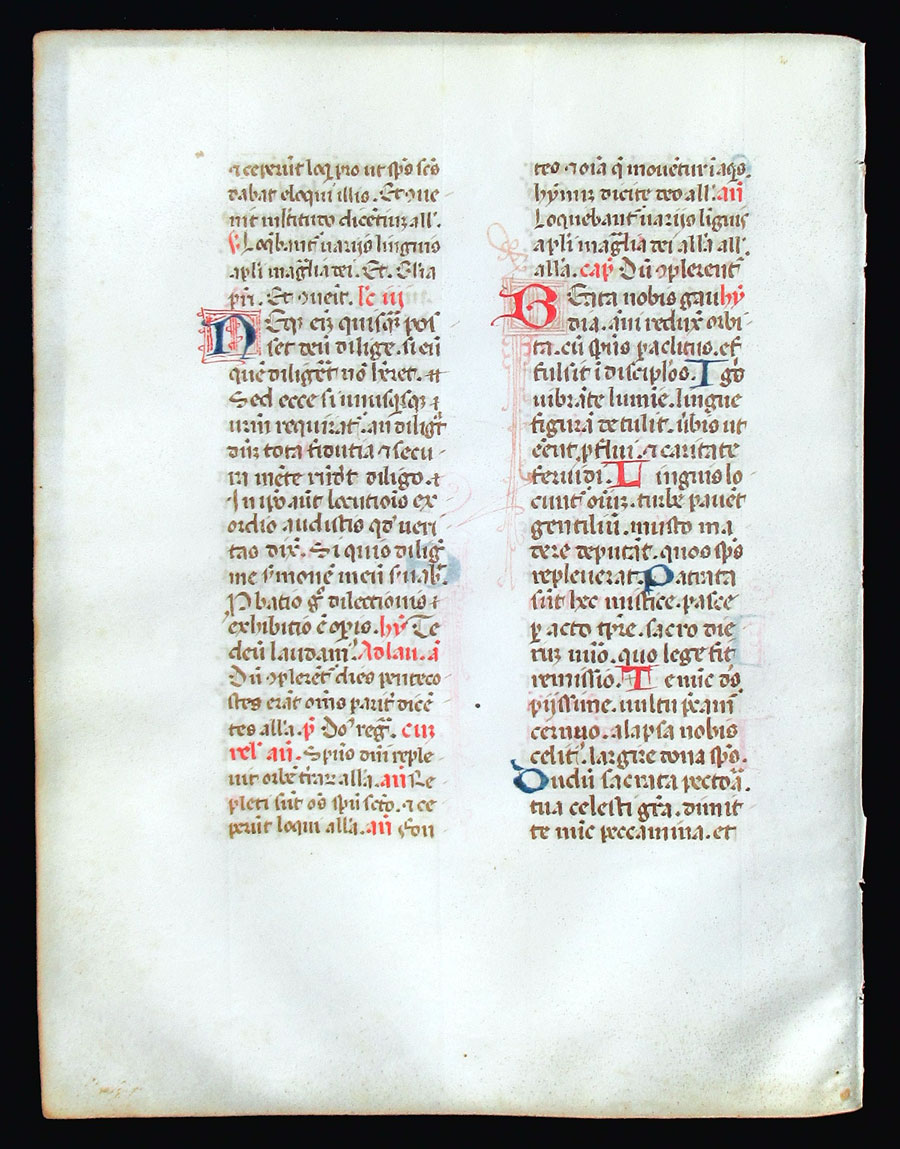 ⁊ ceperūt loq̄ pro ut sp̄s scs̄
dabat eloqui illis. Et 9ue
nit multitudo dicētiuz all'.
℣ Loq̄bant' uarijs linguis
apl'i mag̅lia dei. Et. Gl'ia
pr̄i. Et 9ueīt. lc̄ iii
NEqz eīz quisqz pos
set deū dilige. si eū
quē diligēt nō hēret.
Sed ecce si unusqsqz
urm̄ requirat'. an diligt
dm̄ tota fidutia ⁊ secu
ra mēte rn̄dt diligo.
In ip̄o aūt locutiōis ex
ordio audistis qd' ueri
tas dix̄. Si quis diligt
me s'monē meū s'uab'.
Pbatio g° dilectionis
exhibitio ē op̄is. hȳ Te
deū laudam'. Ad lau. a̅
Dū 9plerēt' dies penteco
stes erāt om̄s parit' dicē
tes alla. p̄ Dn̄s regt'. cū
rel' añ. Spūs dn̄i reple
uit orbē t'raz alla. añ Re
pleti sūt oēs spū scto. ⁊ ce
perūt loqui alla. añ Fon
tes ⁊ oīa q̄ mouētur ī aqs.
hymnz dicite deo all'. añ
Loquebant' uarijs līguis
apl'i mag̅lia dei alla all'
alla. cap̄ Dū 9plerent'
BEata nobis gau hȳ
dia. āni reduxt orbi
ta. cū spūs paclitus. ef
fulsit ī discip̄los. Igō
uibrāte lumīe. lingue
figurā detulit. ūbis ut
ēcent pflui. ⁊ caritate
feruidi. Linguis lo
cunt' oīuz. turbe pauēt
gentiliū. musto ma
dere deputāt. quos sp̄s
repleuerat. Patrata
sūt hec mistice. pasce
p acto tp̄re. sacro die
ruz nūo. quo lege fit
remissio. Te nūc ds̄
pijssime. uultu pcam'
cernuo. alapsa nobis
celit'. largire dona sp̄s.
Dudū sacrata pectoa.
tua celesti gr̄a. dimit
te nūc peccamina. et